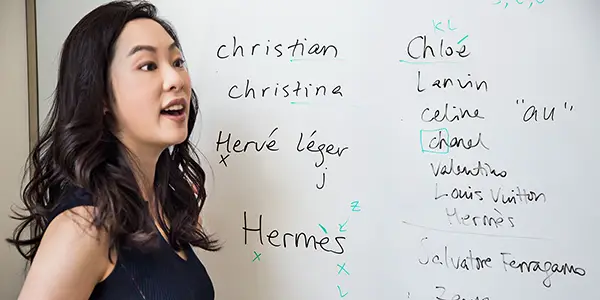 christian
christina
Hervé léger
x
j
Hermès
z
x
x
KL
Chloé
Lanvin
celine "au"
chanel
valentino
Louis Vuitton
Hermès
Salvatore Ferragamo